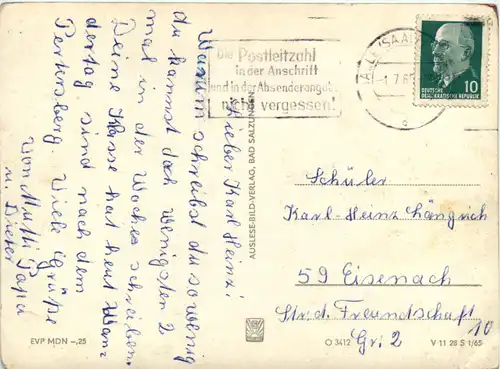 Lieber Karl Heinz!
Warum schreibst du so wenig
du kannst doch wenigsten 2
mal in der Woche schreiben.
Deine Klasse hat heut Wan-
dertag sind nach dem
Petersberg. Viele Grüße
Von Mutti
u. Dieter Papa
AUSLESE-BILD-VERLAG, BAD SALZUNGEN
Die Postleitzahl
in der Anschrift
und in der Absenderangabe
nicht vergessen!
(SAALE)
DEUTSCHE
DEMOKRATISCHE REPUBLIK
10
Schüler
Karl-Heinz Längrich
59 Eisenach
Str. d. Freundschaft
10
Gr: 2
EVP MDN -,25
O 3412
V 11 28 S 1/65